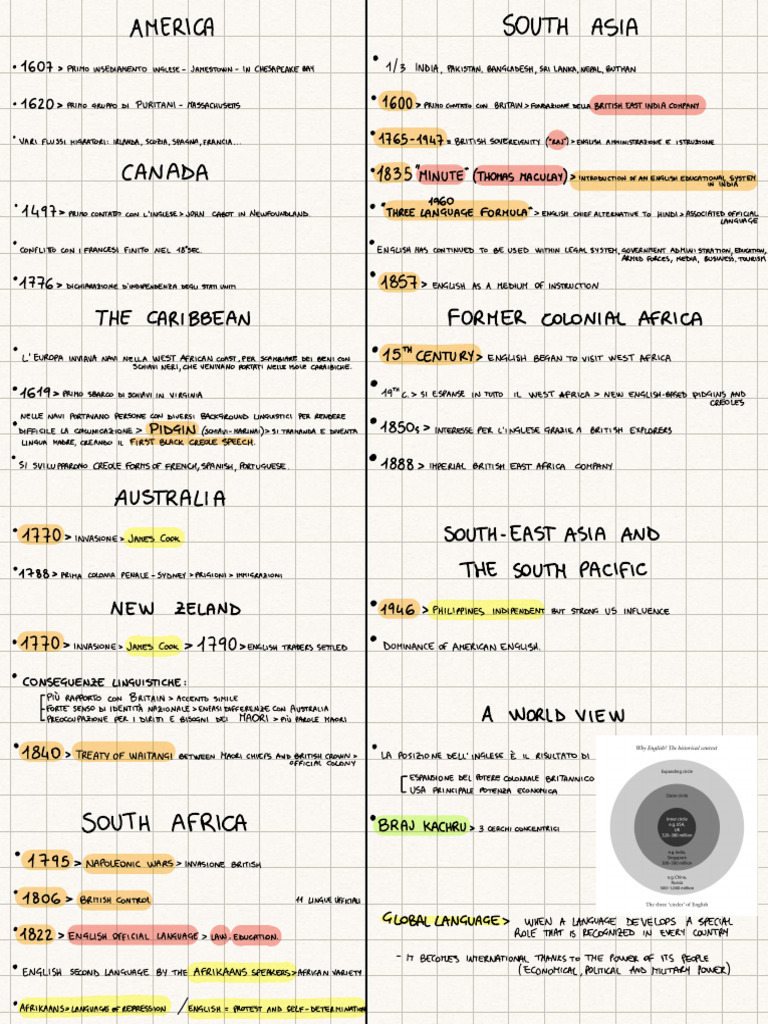 AMERICA
• 1607 > PRIMO INSEDIAMENTO INGLESE - JAMESTOWN - IN CHESAPEAKE BAY
• 1620 > PRIMO GRUPPO DI PURITANI - MASSACHUSETTS
• VARI FLUSSI MIGRATORI: IRLANDA, SCOZIA, SPAGNA, FRANCIA...
CANADA
• 1497 > PRIMO CONTATO CON L'INGLESE > JOHN CABOT IN NEWFOUNDLAND
• CONFLITTO CON I FRANCESI FINITO NEL 18°SEC.
• 1776 > DICHIARAZIONE D'INDIPENDENZA DEGLI STATI UNITI
THE CARIBBEAN
• L'EUROPA INVIAVA NAVI NELLA WEST AFRICAN COAST, PER SCAMBIARE DEI BENI CON
SCHIAVI NERI, CHE VENIVANO PORTATI NELLE ISOLE CARAIBICHE.
• 1619 > PRIMO SBARCO DI SCHIAVI IN VIRGINIA
NELLE NAVI PORTAVANO PERSONE CON DIVERSI BACKGROUND LINGUISTICI PER RENDERE
• DIFFICILE LA COMUNICAZIONE > PIDGIN (SCHIAVI-MARINAI) > SI TRAMANDA E DIVENTA
LINGUA MADRE, CREANDO IL FIRST BLACK CREOLE SPEECH.
• SI SVILUPPARONO CREOLE FORMS OF FRENCH, SPANISH, PORTUGUESE.
AUSTRALIA
• 1770 > INVASIONE > JAMES COOK
• 1788 > PRIMA COLONIA PENALE - SYDNEY > PRIGIONI > IMMIGRAZIONI
NEW ZELAND
• 1770 > INVASIONE > JAMES COOK > 1790 > ENGLISH TRADERS SETTLED
• CONSEGUENZE LINGUISTICHE:
- PIÙ RAPPORTO CON BRITAIN > ACCENTO SIMILE
- FORTE SENSO DI IDENTITÀ NAZIONALE > ENFASI DIFFERENZE CON AUSTRALIA
- PREOCCUPAZIONE PER I DIRITTI E BISOGNI DEI MAORI > PIÙ PAROLE MAORI
• 1840 > TREATY OF WAITANGI BETWEEN MAORI CHIEFS AND BRITISH CROWN >
OFFICIAL COLONY
SOUTH AFRICA
• 1795 > NAPOLEONIC WARS > INVASIONE BRITISH
• 1806 > BRITISH CONTROL 11 LINGUE UFFICIALI
• 1822 > ENGLISH OFFICIAL LANGUAGE > LAW, EDUCATION.
• ENGLISH SECOND LANGUAGE BY THE AFRIKAANS SPEAKERS > AFRICAN VARIETY
• AFRIKAANS > LANGUAGE OF REPRESSION / ENGLISH = PROTEST AND SELF-DETERMINATION
SOUTH ASIA
• 1/3 INDIA, PAKISTAN, BANGLADESH, SRI LANKA, NEPAL, BUTHAN
• 1600 > PRIMO CONTATO CON BRITAIN > FONDAZIONE DELLA BRITISH EAST INDIA COMPANY
• 1765-1947 = BRITISH SOVEREIGNITY ("RAJ") > ENGLISH AMMINISTRAZIONE E ISTRUZIONE
• 1835 "MINUTE" (THOMAS MACULAY) > INTRODUCTION OF AN ENGLISH EDUCATIONAL SYSTEM
IN INDIA
1960
• "THREE LANGUAGE FORMULA" > ENGLISH CHIEF ALTERNATIVE TO HINDI > ASSOCIATED OFFICIAL
LANGUAGE
• ENGLISH HAS CONTINUED TO BE USED WITHIN LEGAL SYSTEM, GOVERNMENT ADMINISTRATION, EDUCATION,
ARMED FORCES, MEDIA, BUSINESS, TOURISM
• 1857 > ENGLISH AS A MEDIUM OF INSTRUCTION
FORMER COLONIAL AFRICA
• 15TH CENTURY > ENGLISH BEGAN TO VISIT WEST AFRICA
• 19TH C. > SI ESPANSE IN TUTTO IL WEST AFRICA > NEW ENGLISH-BASED PIDGINS AND
CREOLES
• 1850s > INTERESSE PER L'INGLESE GRAZIE A BRITISH EXPLORERS
• 1888 > IMPERIAL BRITISH EAST AFRICA COMPANY
SOUTH-EAST ASIA AND
THE SOUTH PACIFIC
• 1946 > PHILIPPINES INDIPENDENT BUT STRONG US INFLUENCE
• DOMINANCE OF AMERICAN ENGLISH.
A WORLD VIEW
• LA POSIZIONE DELL'INGLESE È IL RISULTATO DI
- ESPANSIONE DEL POTERE COLONIALE BRITANNICO
- USA PRINCIPALE POTENZA ECONOMICA
• BRAJ KACHRU > 3 CERCHI CONCENTRICI
Why English? The historical context
Expanding circle
Outer circle
Inner circle
e.g. USA,
UK
320–380 million
e.g. India,
Singapore
300–500 million
e.g. China,
Russia
500–1,000 million
The three 'circles' of English
GLOBAL LANGUAGE > WHEN A LANGUAGE DEVELOPS A SPECIAL
ROLE THAT IS RECOGNIZED IN EVERY COUNTRY
- IT BECOMES INTERNATIONAL THANKS TO THE POWER OF ITS PEOPLE
(ECONOMICAL, POLITICAL AND MILITARY POWER)